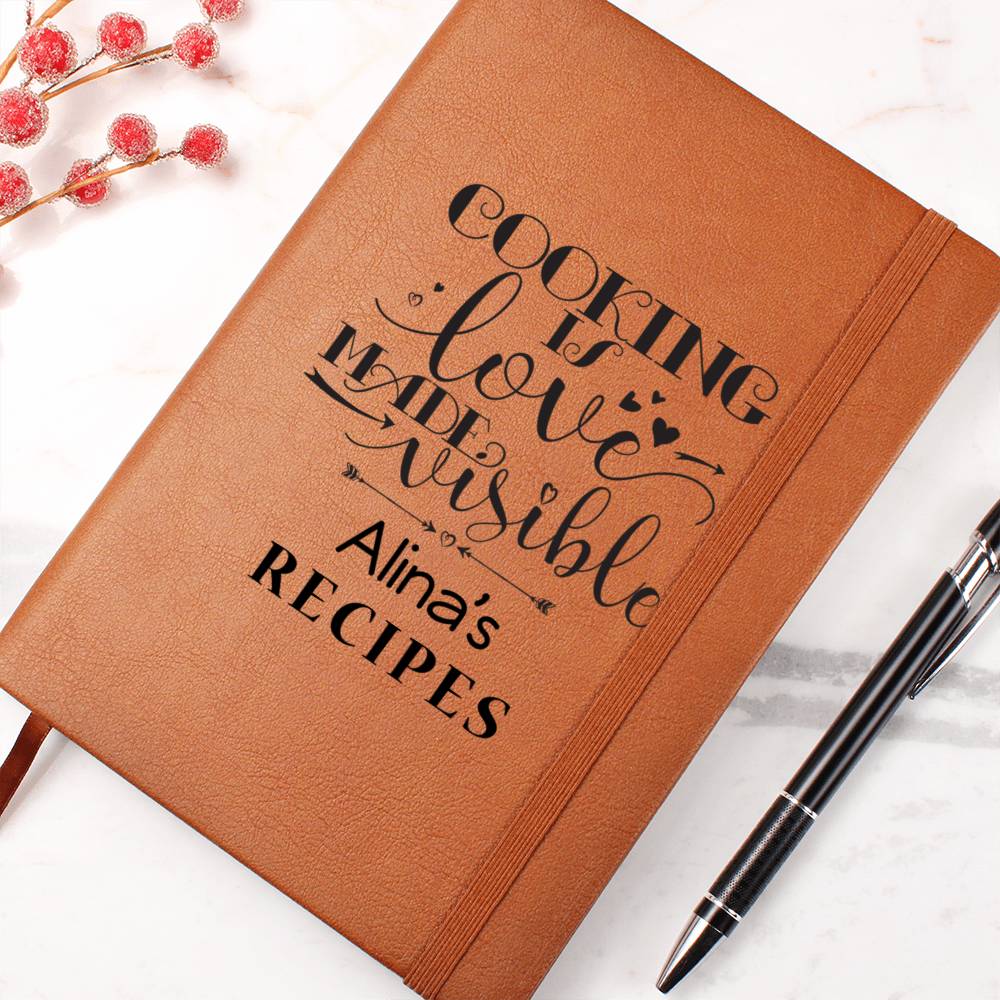 COOKING
IS
love
MADE
visible
Alina's
RECIPES